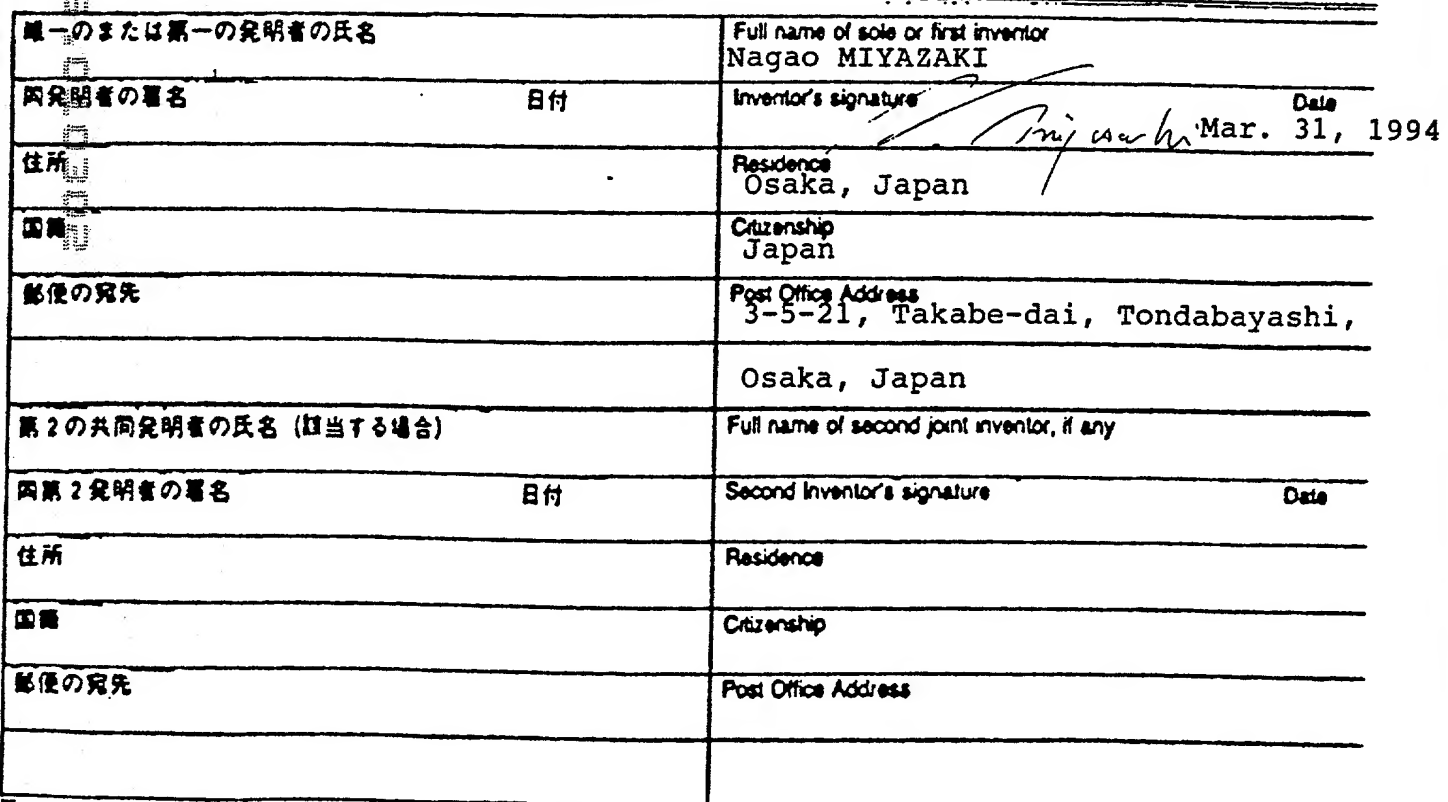 唯一のまたは第一の発明者の氏名
Full name of sole or first inventor
Nagao MIYAZAKI
同発明者の署名 日付
Inventor's signature Date
Mar. 31, 1994
住所
Residence
Osaka, Japan
国籍
Citizenship
Japan
郵便の宛先
Post Office Address
3-5-21, Takabe-dai, Tondabayashi,
Osaka, Japan
第2の共同発明者の氏名 (該当する場合)
Full name of second joint inventor, if any
同第2発明者の署名 日付
Second Inventor's signature Date
住所
Residence
国籍
Citizenship
郵便の宛先
Post Office Address